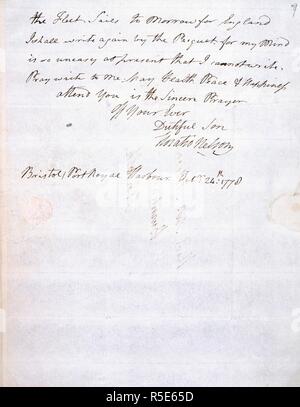 the Fleet Sails to Morrow for England
I shall write again by the Pacquet for my Mind
is so uneasy at present that I cannot write.
Pray write to me May Health Peace & Happiness
attend You is the Sincere Prayer
of Your Ever
Dutiful Son
Horatio Nelson
Bristol, Port Royal Harbour Octr. 24th. 1778
alamy
Image ID: R5E65D
www.alamy.com